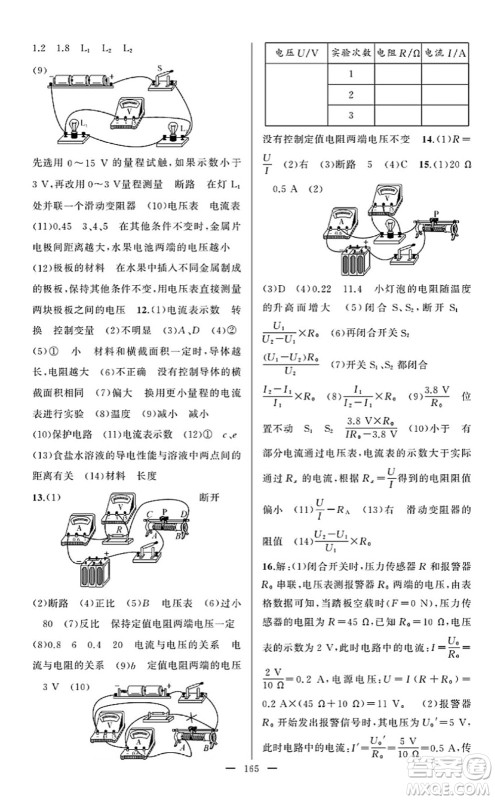 1.2 1.8 L₁ L₂ L₂
(9)
S
L₂
L₁
先选用 0～15 V 的量程试触,如果示数小于
3 V,再改用 3 V 量程测量 断路 在灯 L₁
处并联一个滑动变阻器 (10)电压表 电流
表 (11)0.45 3、4、5 在其他条件不变时,金属片
电极距离越大,水果电池两端的电压越小
(16)极板的材料 在其他条件不变时,极板
间距离越大,电压越小 将不同金属制成
的极板,保持其他条件不变,用电压表直接测量
两块极板之间的电压 12.(1)电流表示数 转
换 控制变量 (2)不明显 (3)A、D (4)②
(5)① 小 材料和横截面积一定时,导体越
长,电阻越大 ②导体的长度 导体的横
截面积 (7)偏大 换用更小量程的电流
表进行实验 (8)温度 (9)减小 减小
(10)保护电路 (11)电流表示数 (12)① c、e
(13)食盐水溶液的导电性能与溶液中两点间的
距离有关 (14)材料 长度
13.(1) 断开
P
A
B
C
D
(2)断路 (4)正比 (5)B 电压表 (6)过小
80 (7)反比 保持定值电阻两端电压一定
(8)0.8 6 4 20 电流与电压的关系 电
流与电阻的关系 (9)b 定值电阻两端的电压
3 V (10)
A
B
电压 U/V 实验次数 电阻 R/Ω 电流 I/A
1
2
3
没有控制定值电阻两端电压不变 14.(1)R=
U/I (2)右 (3)断路 5 (4)C 15.(1)20 Ω
0.5 A (2)
P
(3)D (4)0.22 11.4 小灯泡的电阻随温度
的升高而增大 (5)闭合 S、S₂,断开 S₁
U₁/(U₂−U₁)×R₀ (6)断开开关 S₂ 闭合开关 S₁
(U₁−U₂)/U₂×R₀ (7)开关 S₁、S₂ 都闭合
(I₂−I₁)/I₁×R₀ (8)(I−I₁)/I₁×R₀ (9)3.8 V/R₀ 位
置不动 S₁ S₂ 3.8 V×R₀/(IR₀−3.8 V) (10)有
部分电流通过电压表,电流表的示数大于通
过 Rₓ 的电流,根据 Rₓ=U/I 得到的电阻值
偏小 (11)U/I−R_A (13)右 滑动变阻器的
阻值 (14)(U₂−U₁)/U₁×R₀
16.解:(1)闭合开关时,压力传感器 R 和报警器
R₀ 串联,电压表测报警器 R₀ 两端的电压,由表
格数据可知,当踏板空载时(F=0),电压
表的示数为 2 V,此时电路中的电流 I=U₀/R₀=
2 V/10 Ω=0.2 A,电源电压:U=I(R₀+R)=
0.2 A×(45 Ω+10 Ω)=11 V;(2)当报警器 R₀
开始发出报警信号时,其电压为 U₀′=5 V,
此时电路中的电流:I′=U₀′/R₀=5 V/10 Ω=0.5 A,传
165